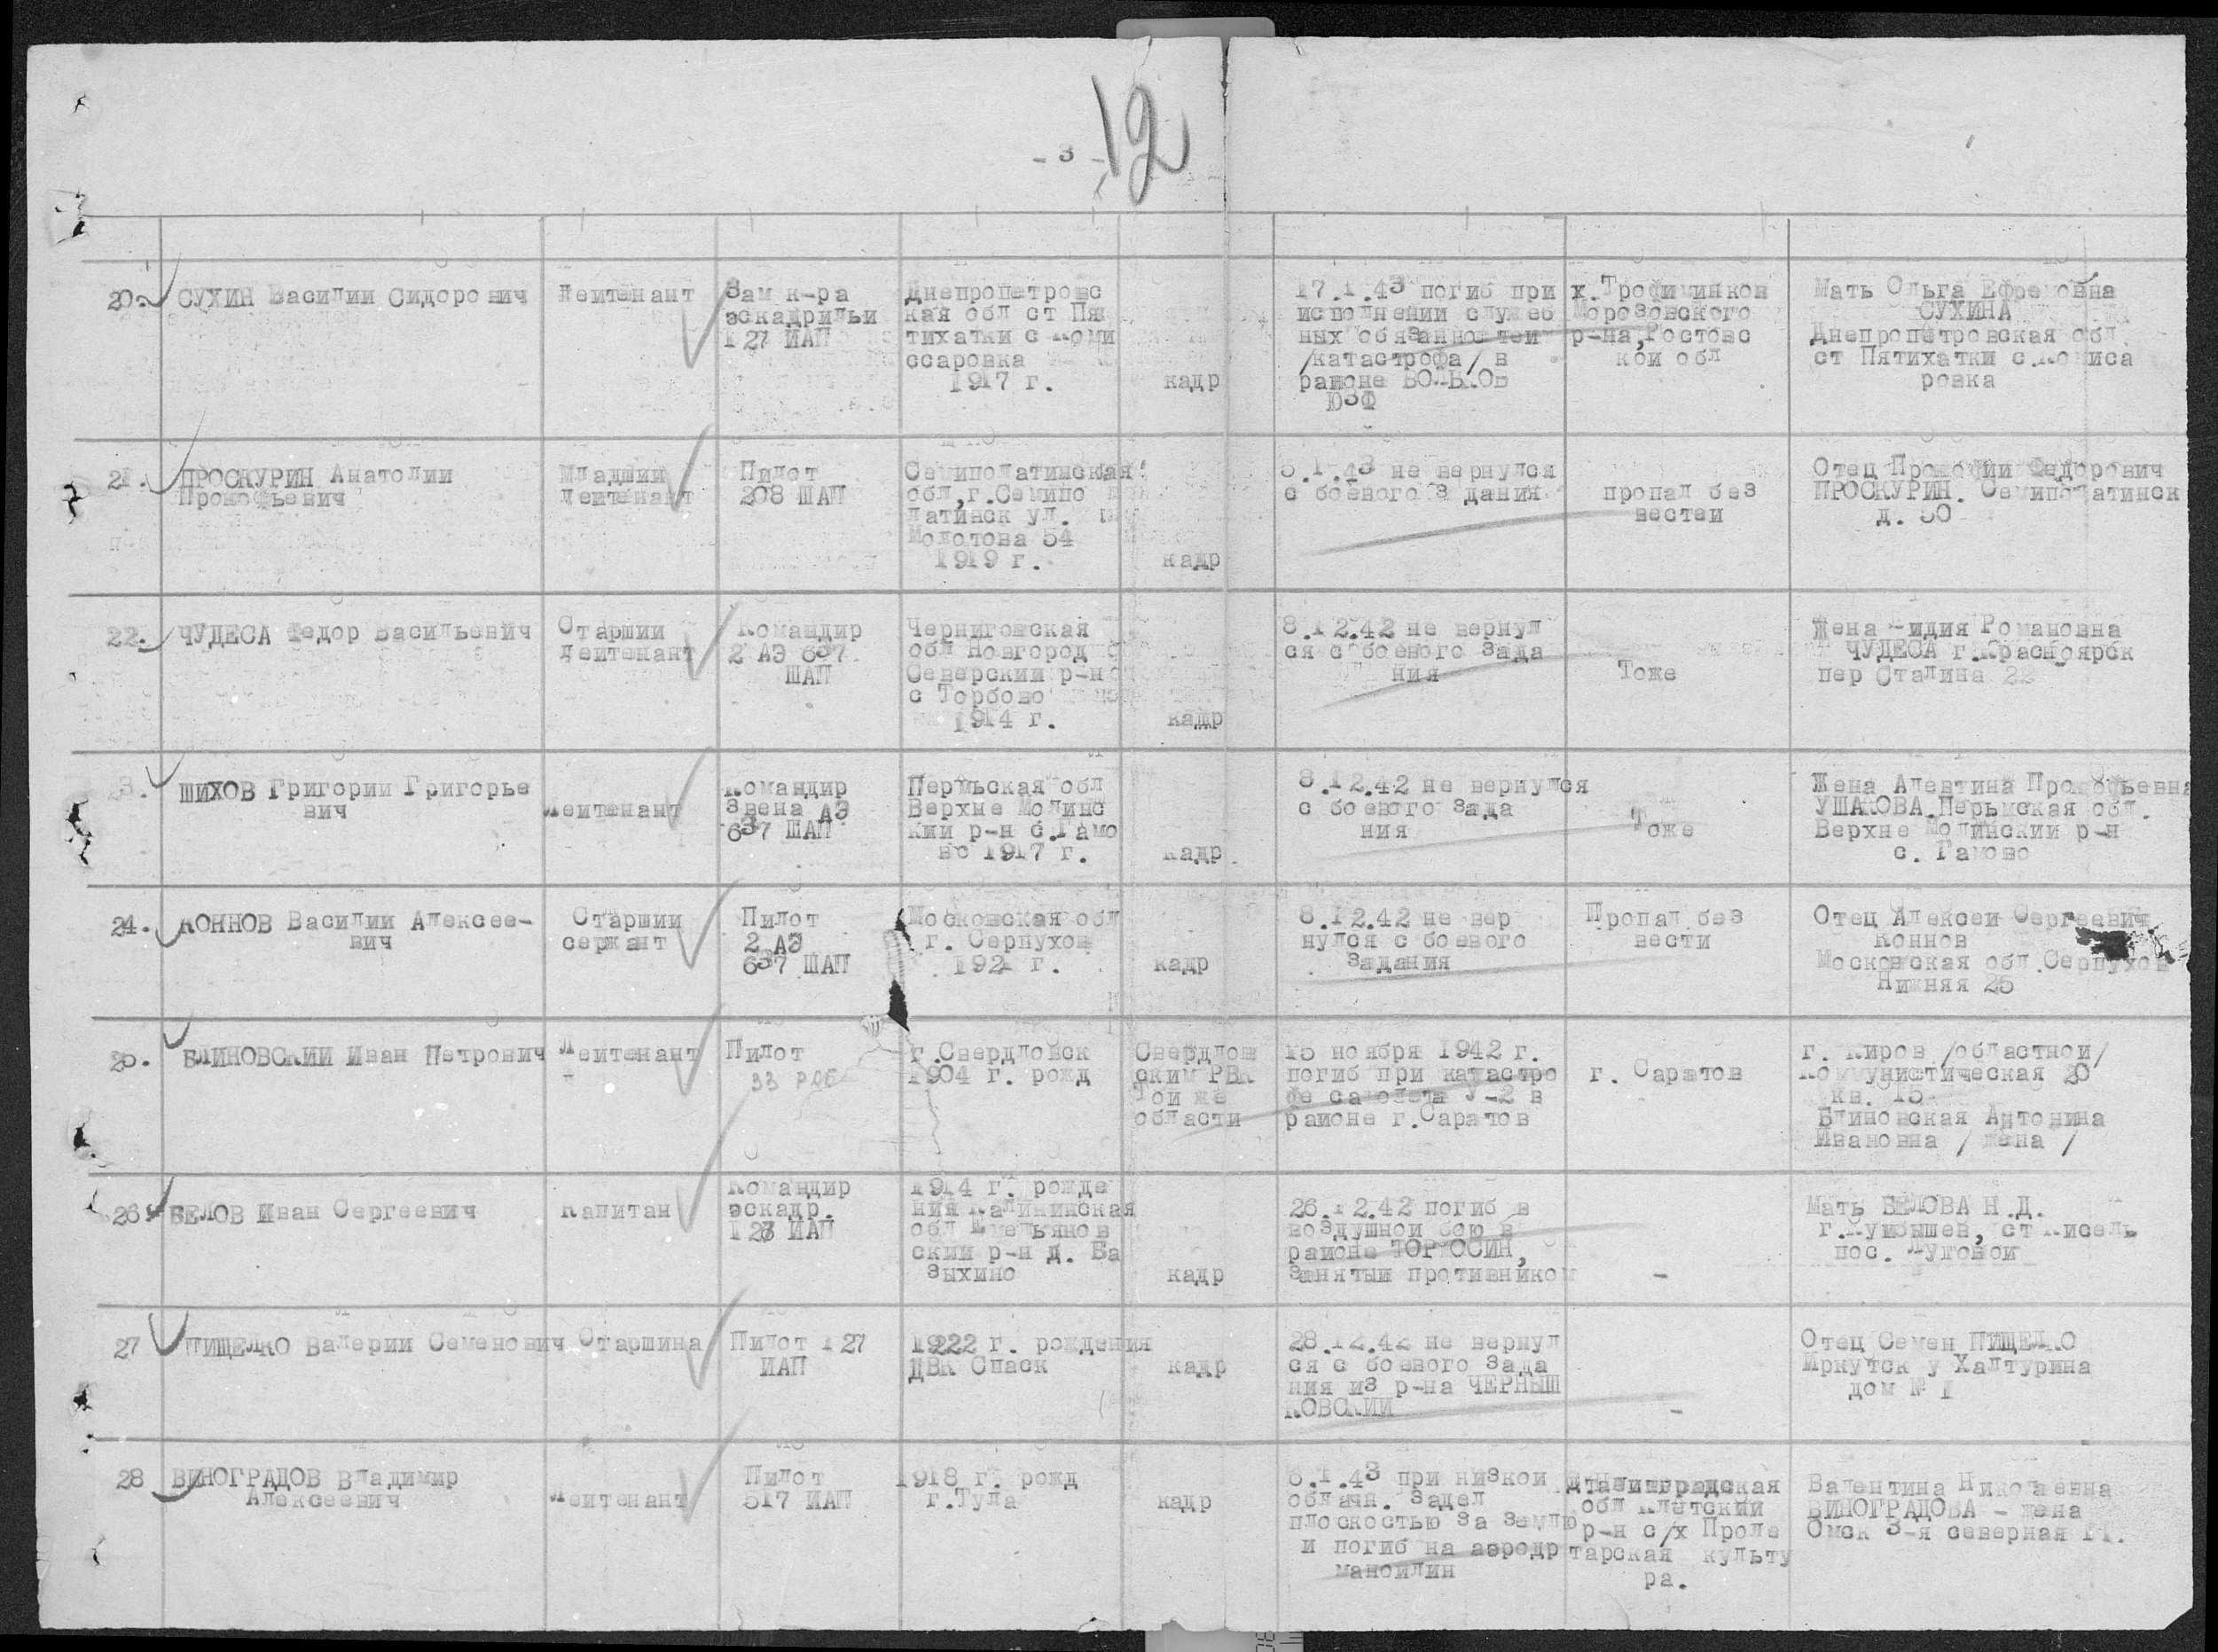 - 3 -
12
20. СУХИН Василии Сидорович
Лейтенант
Зам к-ра
эскадрильи
127 ИАП
Днепропетровс
кая обл ст Пя
тихатки с Коми
ссаровка
1917 г.
кадр
17.1.43 погиб при
исполнении служеб
ных обязанностеи
/катастрофа/ в
районе ВОЛЬКОВ
ЮЗФ
х.Трофиминков
Морозовского
р-на,Ростовс
кои обл
Мать Ольга Ефремовна
СУХИНА
Днепропетровская обл.
ст Пятихатки с.Комиса
ровка
21. ПРОСКУРИН Анатолии
Прокофьевич
Младшии
Лейтенант
Пилот
208 ШАП
Семипалатинская
обл,г.Семипо
латинск ул.
Молотова 54
1919 г.
кадр
1.43 не вернулся
с боевого з дания
пропал без
вестеи
Отец Прокофии Федорович
ПРОСКУРИН. Семипалатинск
д. 50
22. ЧУДЕСА Федор Васильевич
Старшии
Лейтенант
Командир
2 АЭ 637
ШАП
Черниговская
обл Новгород
Северскии р-н
с Торбово
1914 г.
кадр
8.12.42 не вернул
ся с боевого зада
ния
Тоже
Жена Лидия Романовна
ЧУДЕСА г.Красноярск
пер Сталина 22
3. ШИХОВ Григории Григорье
вич
Лейтенант
Командир
Звена АЭ
637 ШАП
Пермьская обл
Верхне Молинс
кии р-н с.Гамо
во 1917 г.
кадр
8.12.42 не вернулся
с боевого зада
ния
Тоже
Жена Алевтина Прокофьевна
УШАКОВА.Перьмская обл.
Верхне Молинскии р-н
с. Гамово
24. КОННОВ Василии Алексее-
вич
Старшии
сержант
Пилот
2 АЭ
637 ШАП
Московская обл
г. Серпухов
1921 г.
кадр
8.12.42 не вер
нулся с боевого
задания
Пропал без
вести
Отец Алексеи Сергеевич
Коннов
Московская обл.Серпухов
Нижняя 25
25. БЛИНОВСКИИ Иван Петрович
Лейтенант
Пилот
33 РАБ
г.Свердловск
1904 г. рожд
Свердлов
ским РВК
Тои же
области
15 ноября 1942 г.
погиб при катастро
фе самолета У-2 в
районе г.Саратов
г. Саратов
г. Киров /областнои/
Коммунистическая 20
кв. 15
Блиновская Антонина
Ивановна /жена/
26. БЕЛОВ Иван Сергеевич
Капитан
Командир
эскадр.
123 ИАП
1914 г. рожде
ния Калининская
обл Емельянов
скии р-н д. Ба
зыкино
кадр
26.12.42 погиб в
воздушнои бою в
районе ТОРМОСИН,
занятыи противником
-
Мать БЕЛОВА Н.Д.
г.Куибышев, ст Кисель
пос. Луговои
27 ПИЩЕЛКО Валерии Семенович
Старшина
Пилот 127
ИАП
1922 г. рождения
ДВК Спаск
кадр
28.12.42 не вернул
ся с боевого зада
ния из р-на ЧЕРНЫШ
КОВСКИИ
-
Отец Семен ПИЩЕЛКО
Иркутск у Халтурина
дом № 1
28 ВИНОГРАДОВ Владимир
Алексеевич
Лейтенант
Пилот
517 ИАП
1918 г. рожд
г.Тула
кадр
6.1.43 при низкои
облачн. задел
плоскостью за землю
и погиб на аэродр
маноилин
обл Клетскии
р-н с/х Проле
тарская культу
ра.
Валентина Николаевна
ВИНОГРАДОВА - жена
Омск 3-я северная 11.